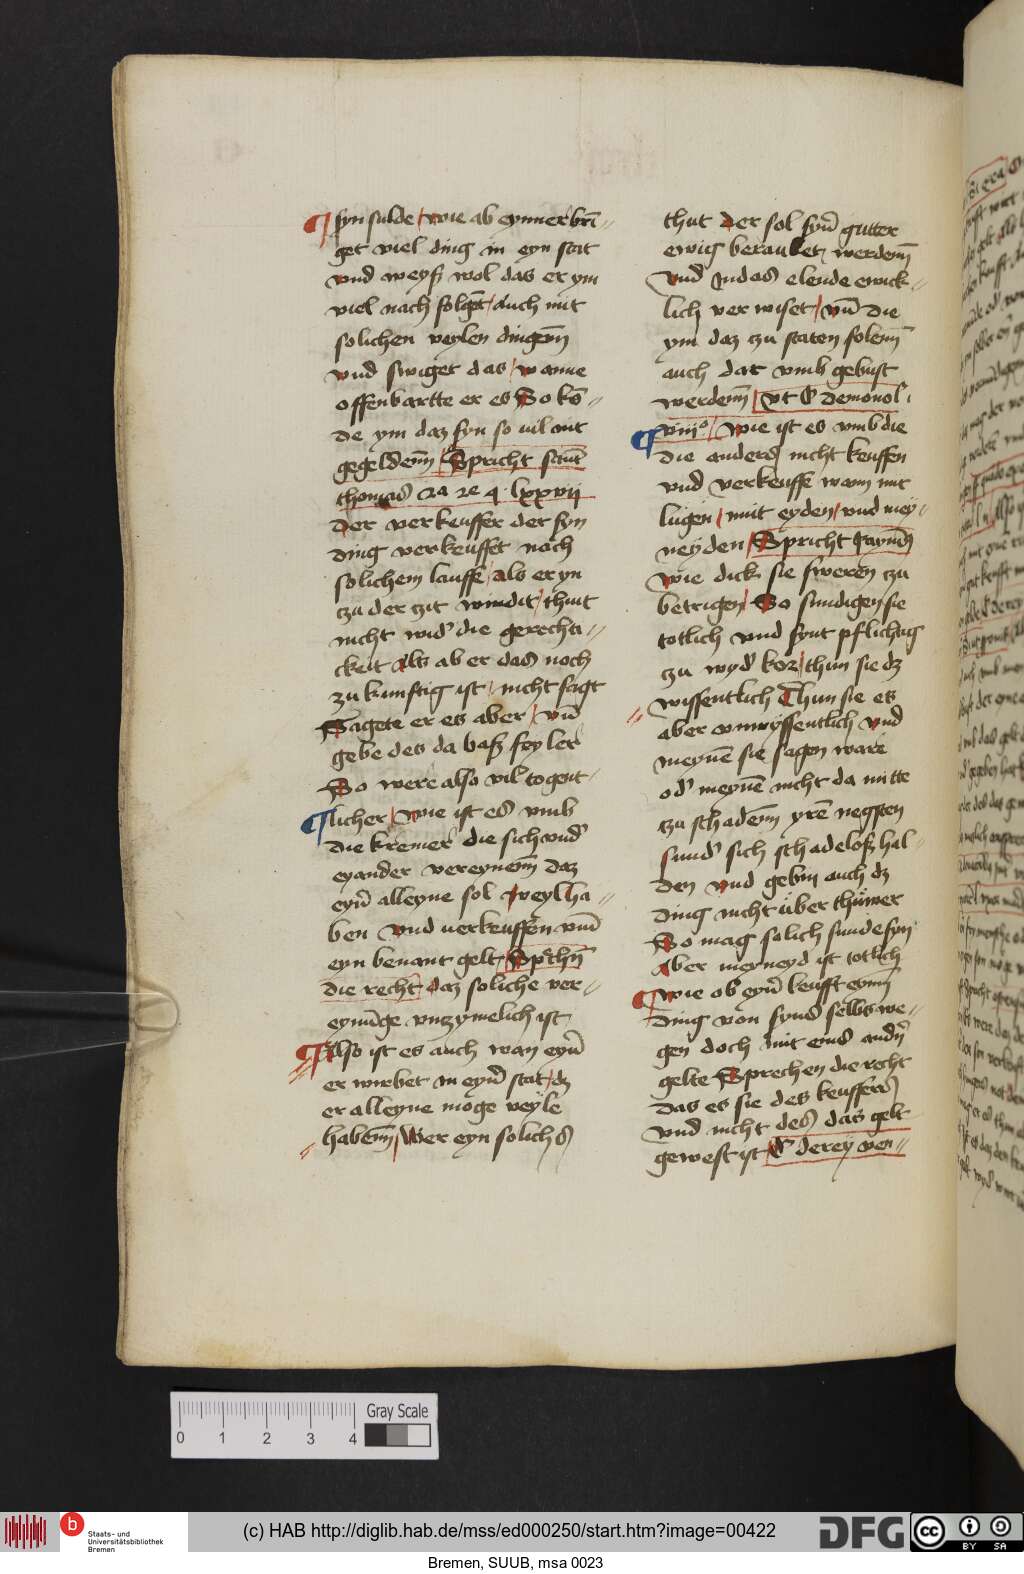 syn sulde / wie ab eynner bri¯=
get viel ding in eyn stat
vnd weyß wol das er ym
viel nach folget / auch mit
solichen veylen dingenn
vnd swiget das / wanne
offenbartte er es So ko¯=
de ym daz syn so vil nit
gegeldenn / Spricht sant
thomas 2a 2e q lxxvij
der verkeuffer der syn
ding verkeuffet nach
solichem lauffe / als er yn
zu der zit vindit / thut
nicht wid' die gerechti=
ckeit Als aber das noch
zukunfftig ist / nicht sagt
Sagete er es aber / vn¯
gebe des da baß feyler
So were also vil togent=
licher / wie ist es vmb
die kremer die sich vnd'
eyander vereynenn daz
eyn' alleyne sol veyl ha=
ben vnd uerkeuffen vm¯
eyn benant gelt / Sp'chn¯
die recht daz soliche ver=
eynu¯ge vnzymelich ist
Also ist es auch wan eyn'
er wirbet in eyn' stat / dz
er alleyne moge veyle
habenn / Wer eyn solichs
thut der sol syn' gutter
ewig beraubet werdenn
vnd Indas elende ewick=
lich verwiset / vn¯ die
ym daz zu staten solenn
auch dar vmb gebust
werdenn / vt C demonol'
viij° / Wie ist es vmb die
die anders nicht keuffen
vnd verkeuffe wann mit
lugen / mit eyden / vnd mey=
neyden / Spricht Raymd'
wie dick sie sweren zu
betrigen / So sundigen sie
totlich vnd synt pflichtig
zu wyd' kor / thun sie dz
wissentlich Thun sie es
aber vnwyssentlich vnd
meyne¯ sie sagen ware
od' meyne¯ nicht da mitte
zu schadenn yre¯ negsten
sund' sich schadeloß hal=
den vnd gebin auch dz
ding nicht über thüwer
So mag solich sunde syn
Aber meyneyd ist totlich
wie ob eyn' keufft eynn
ding von synd selbs we=
gen doch mit eins andn'
gelte Sprechen die recht
das es sie des keuffers
vnd nicht des das gelt
gewest ist / C derey ven=
0 1 2 3 4
Gray Scale
Staats- und
Universitätsbibliothek
Bremen
(c) HAB http://diglib.hab.de/mss/ed000250/start.htm?image=00422
DFG
cc BY SA
Bremen, SUUB, msa 0023